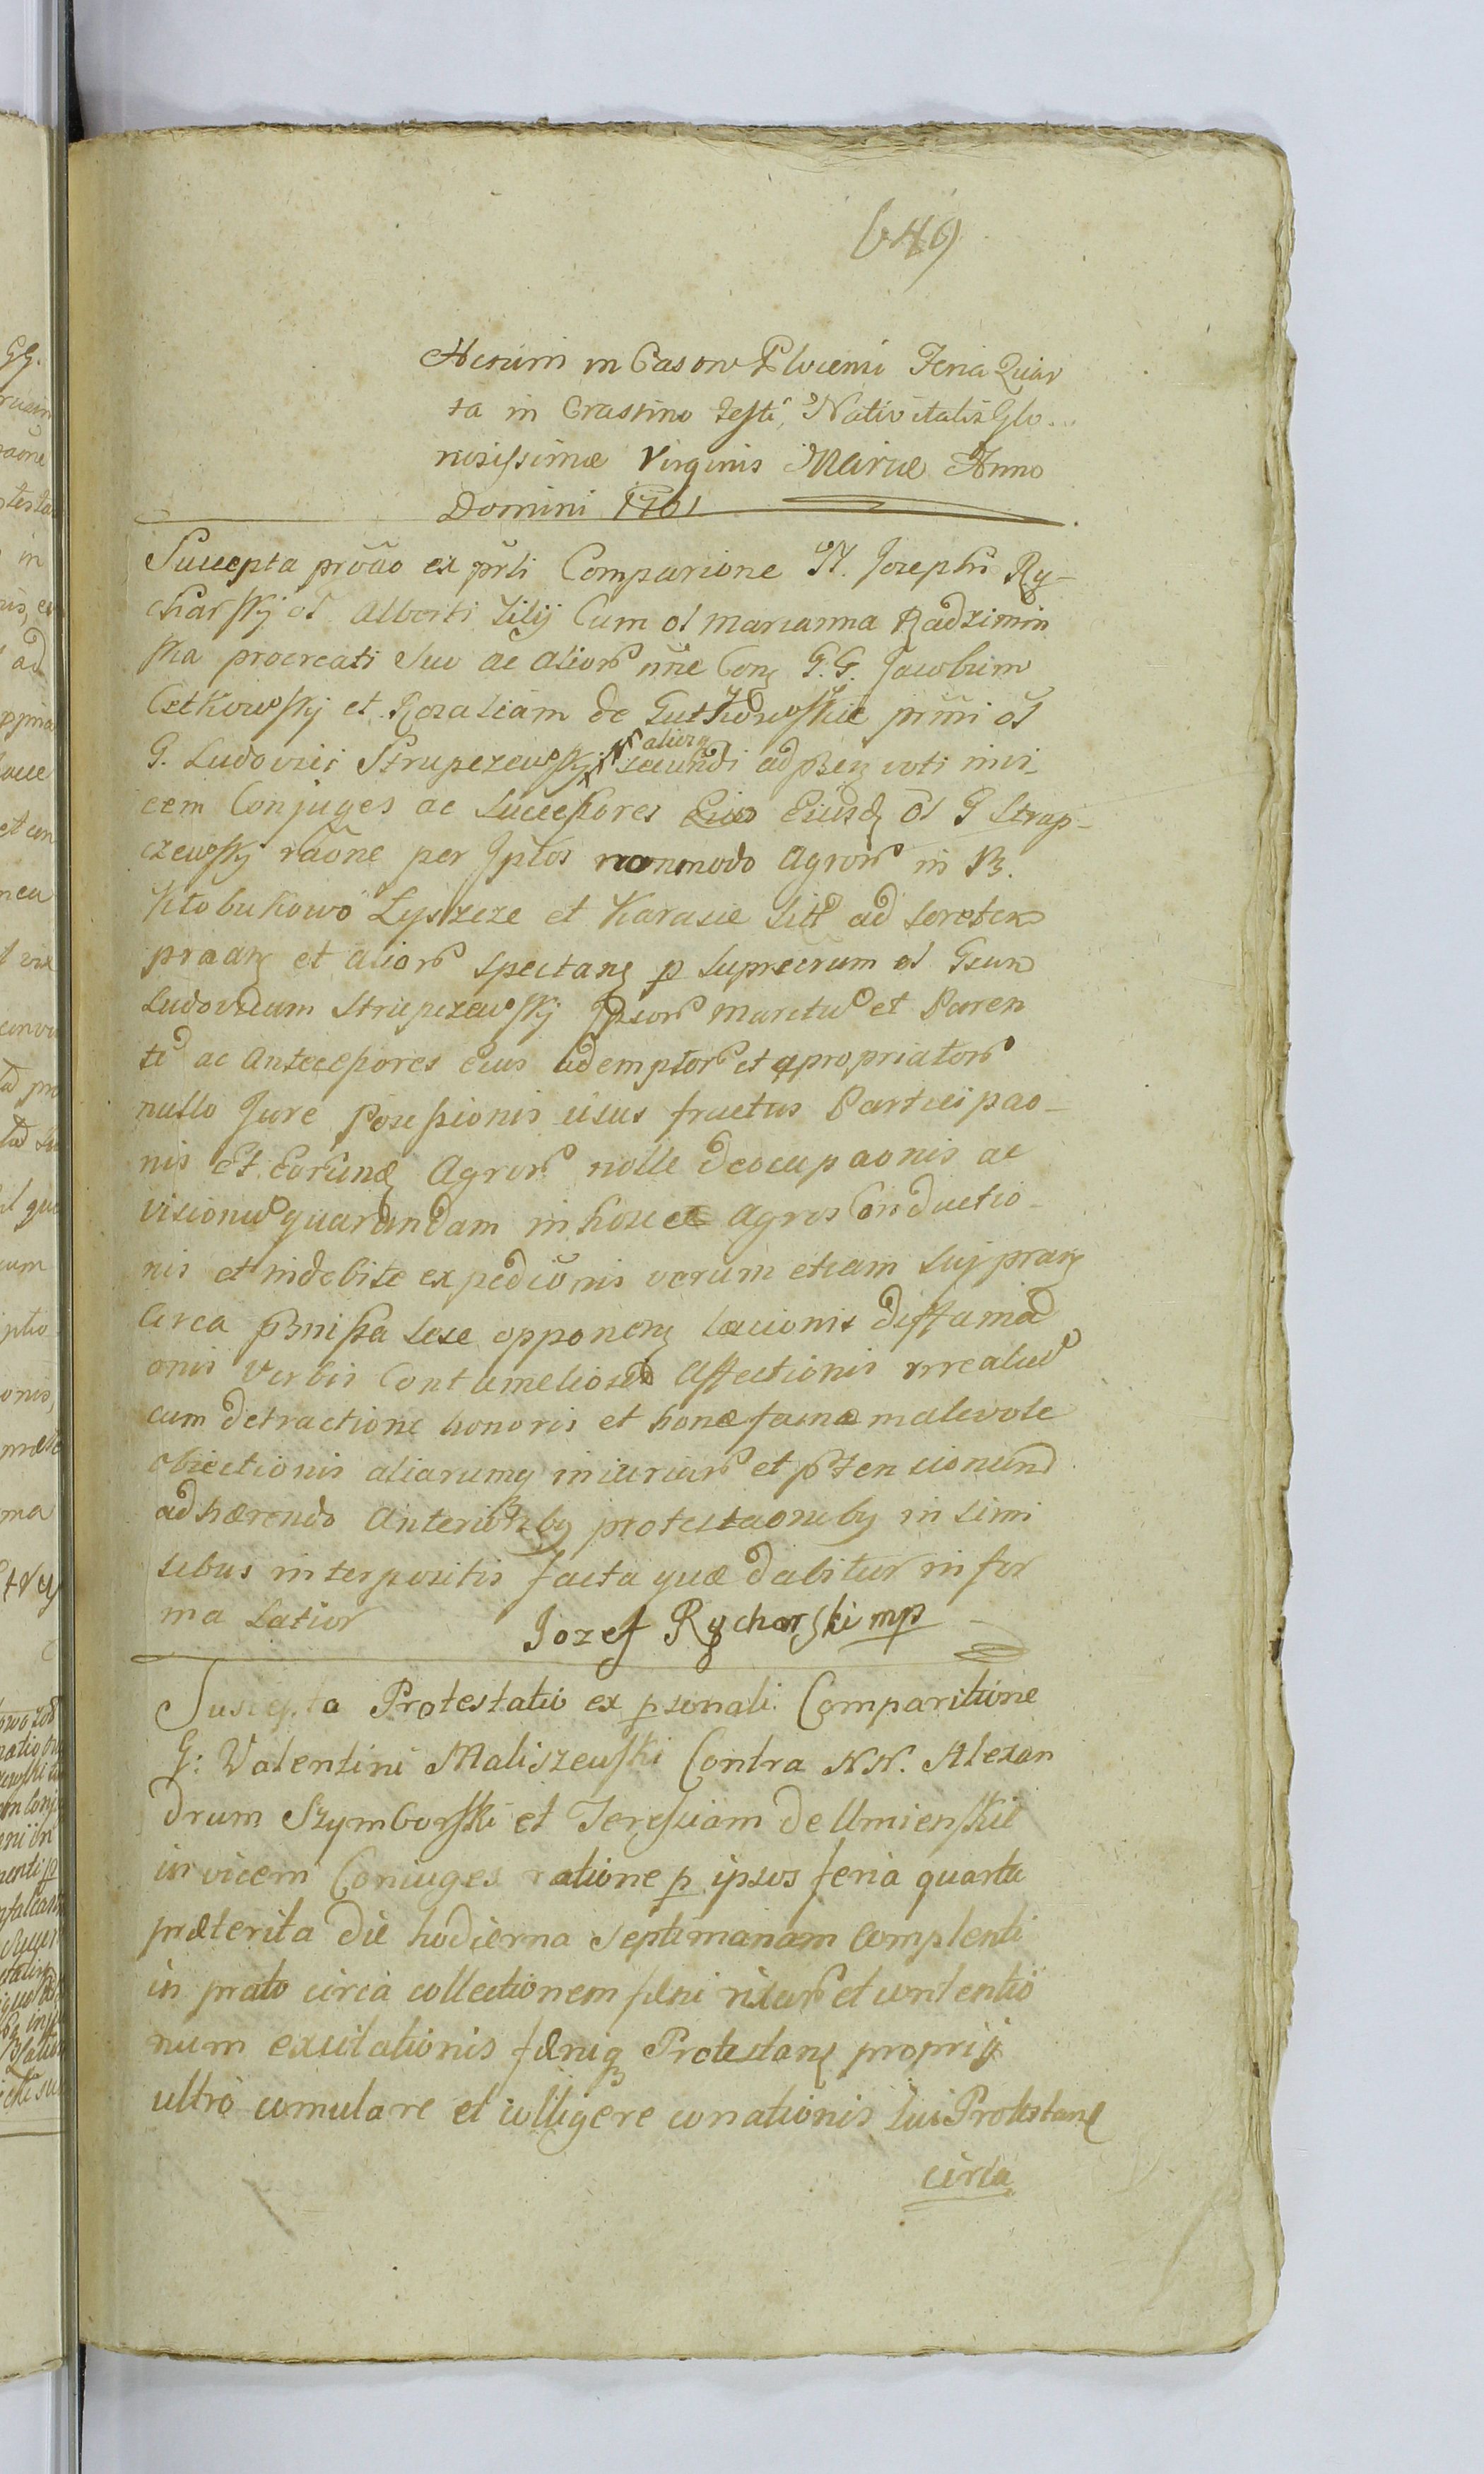 649
Actum in Castro Plocensi Feria Quar
ta in Crastino Festi, Nativitatis Glo...
riosissimæ Virginis Mariæ Anno
Domini 1761
Suscepta proãо ex prsli Comparione N. Josephi Ry-
charskj ol Alberti filij Cum ol Marianna Radzimin
ska procreati suo ac alior nne Con G.G. Jacobum
Cetkowskj et Rozaliam de Gutkowskie primi ol
G. Ludovici Strupczewskj alias secundi ad psens voti invi_
cem Conjuges ac Successores Eius Eiusd ol G Strup-
czewskj raõne per Ipsos nonmodo Agror in B.
Kłobukowo Lyszcze et Karasie sitt ad sortem
praan et alior spectan p supremum ol Gsum
Ludovicum Strupczewskj Ipsor Maritu et Paren
te ac Antecessores eius ademptor et apropriator
nullo Jure Possessionis usus fructus Participao_
nis Et Eorund Agror nolle deocupaonis ac
visionu quarundam in hosce Agros Conductio_
nis et indebite expedionis verum etiam suj pran
Circa pmissa sese opponen læsionis diffama
onis Verbis Contumeliosis Affectionis rrealu
cum detractione honoris et bonæ famæ malevole
obiectionis aliarumq iniuriar et ptensionum
adhærendo Anteriorbq protestaonibq in simi
libus interpositis facta quæ dabitur in for
ma Latior Jozef Rycharski mp
Suscepta Protestatio ex psonali Comparitione
G: Valentini Maliszewski Contra NN. Alexan
drum Szymborski et Teresiam de Umienskie
invicem Coniuges ratione p ipsos feria quarta
præterita die hodierna septimanam complenti
in prato circa collectionem fæni rixar et contentio
num excitationis fæniq Protestan proprij
ultro comulare et colligere conationis sui Protestan
circa